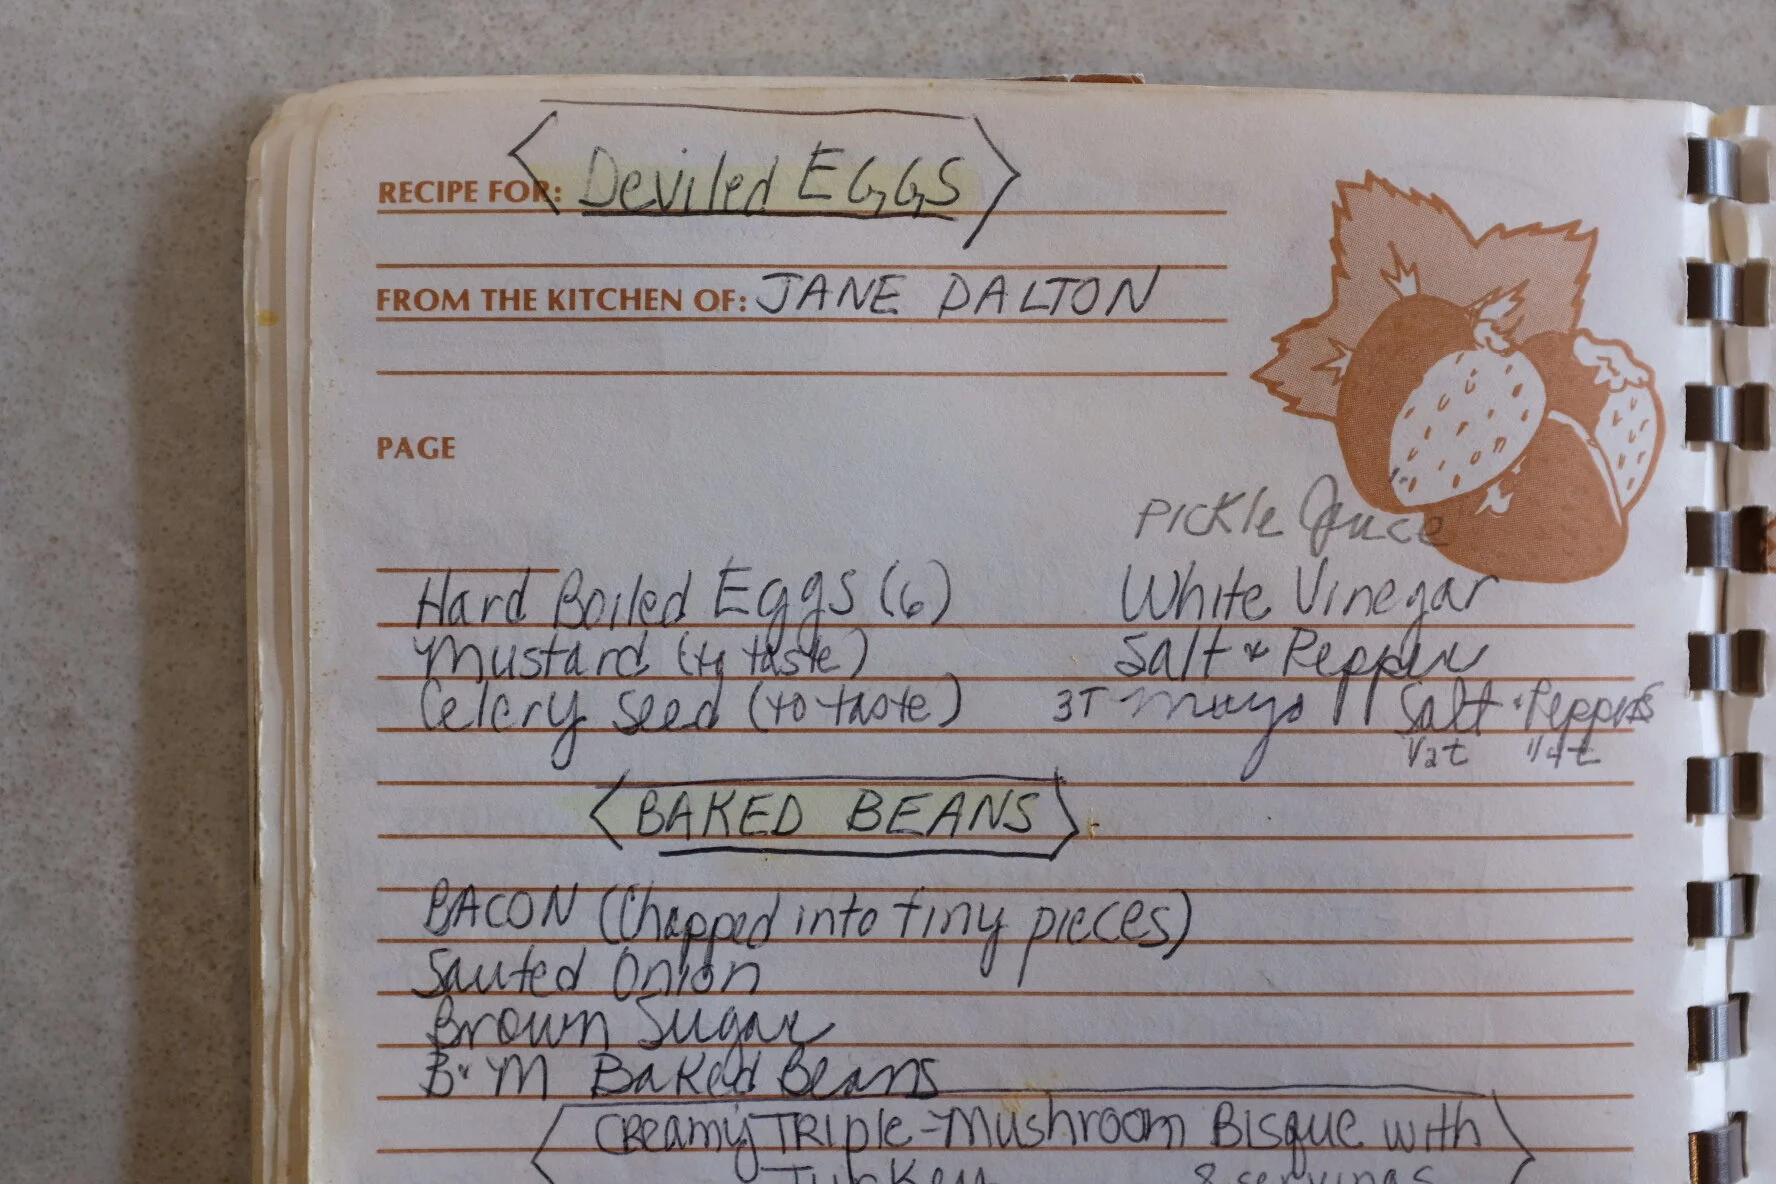 RECIPE FOR: Deviled EGGS
FROM THE KITCHEN OF: JANE DALTON
PAGE
Pickle Juice
Hard Boiled Eggs (6) White Vinegar
Mustard (to taste) Salt & Pepper
Celery Seed (to taste) 3T Mayo Salt & Pepper
1/2t 1/4t
BAKED BEANS
BACON (Chopped into tiny pieces)
Sauted Onion
Brown Sugar
B&M Baked Beans
Creamy TRIPle-Mushroom Bisque with
Turkey 8 servings